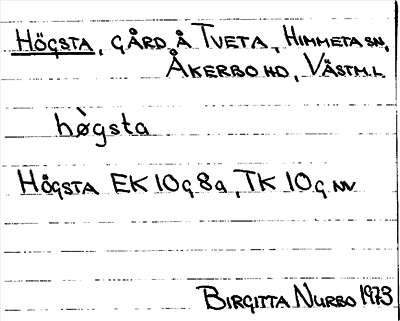 Högsta, gård å Tveta, Himmeta sn,
Åkerbo hd, Västm.l
hø̀gsta
Högsta EK 10g8a, TK 10g NV
Birgitta Nurbo 1973